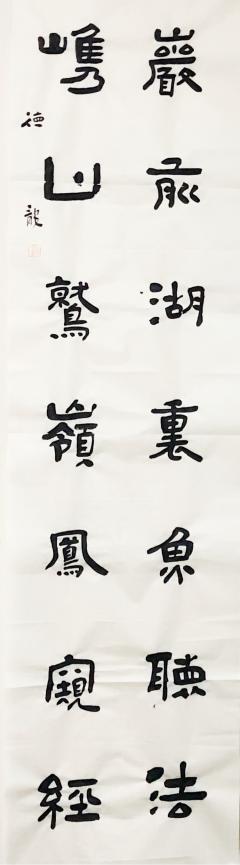 巖湖裏魚聽法
山鷲嶺鳳窺經
德龍